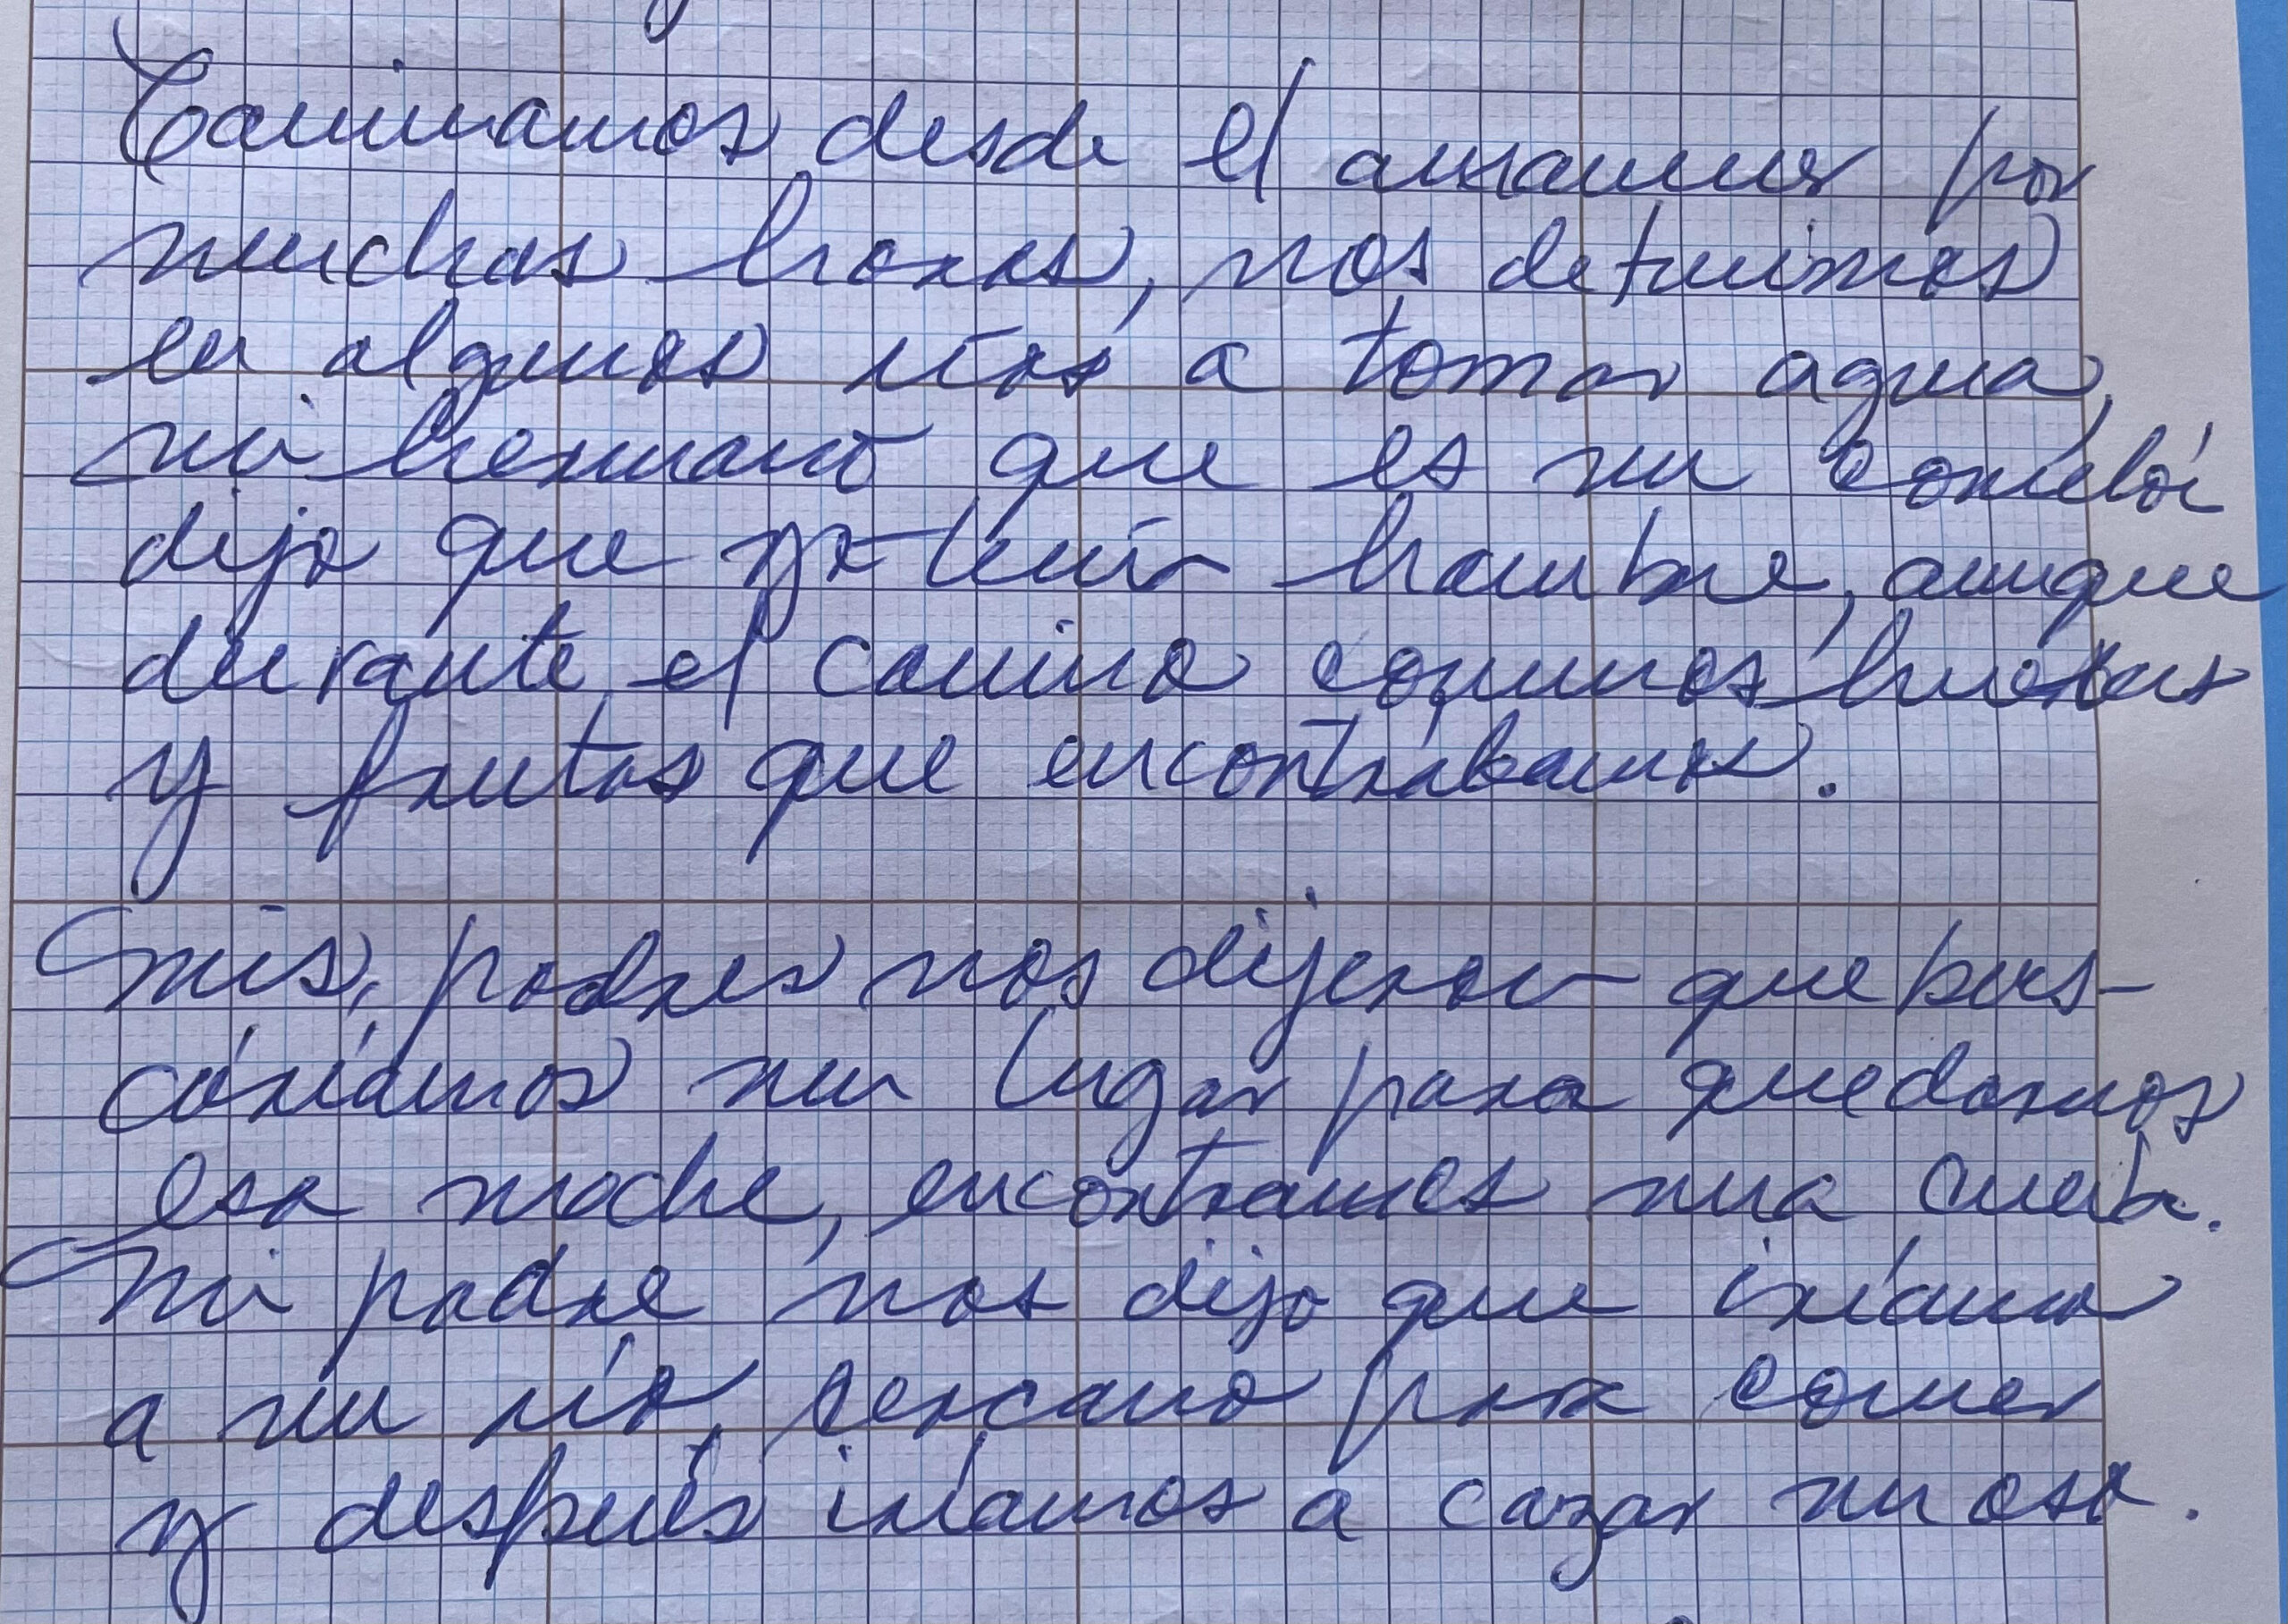 Caminamos desde el amanecer por
muchas horas, nos detuvimos
en algunos ríos a tomar agua,
mi hermano que es un
dijo que ya tenía hambre, aunque
durante el camino comimos
y frutas que encontrábamos.
Mis padres nos dijeron que bus-
cáríamos un lugar para quedarnos
esa noche, encontramos una cueba.
Mi padre nos dijo que iríamos
a un río cercano para comer
y después iríamos a cazar un oso.